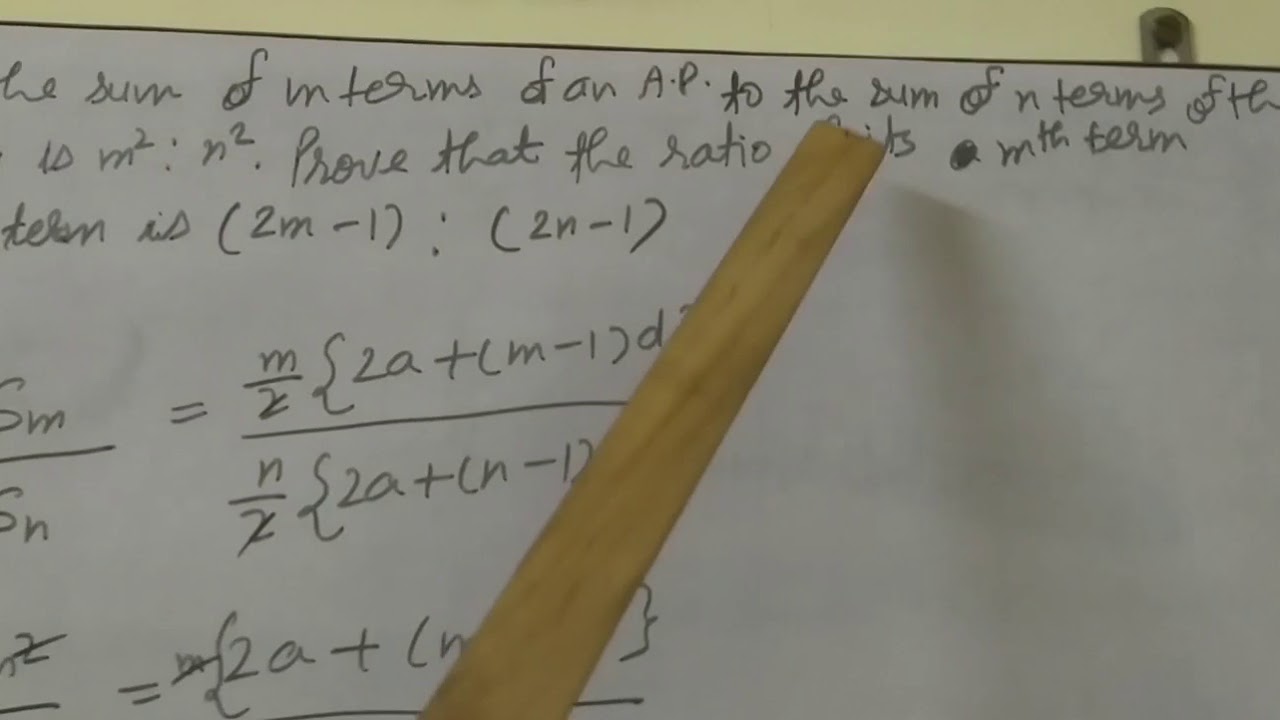 he sum of m terms of an A.P. to the sum of n terms of th
is m² : n². Prove that the ratio its mth term
term is (2m-1) : (2n-1)
Sm = m/2 {2a+(m-1)d
Sn n/2 {2a+(n-1)
= m{2a + ( }